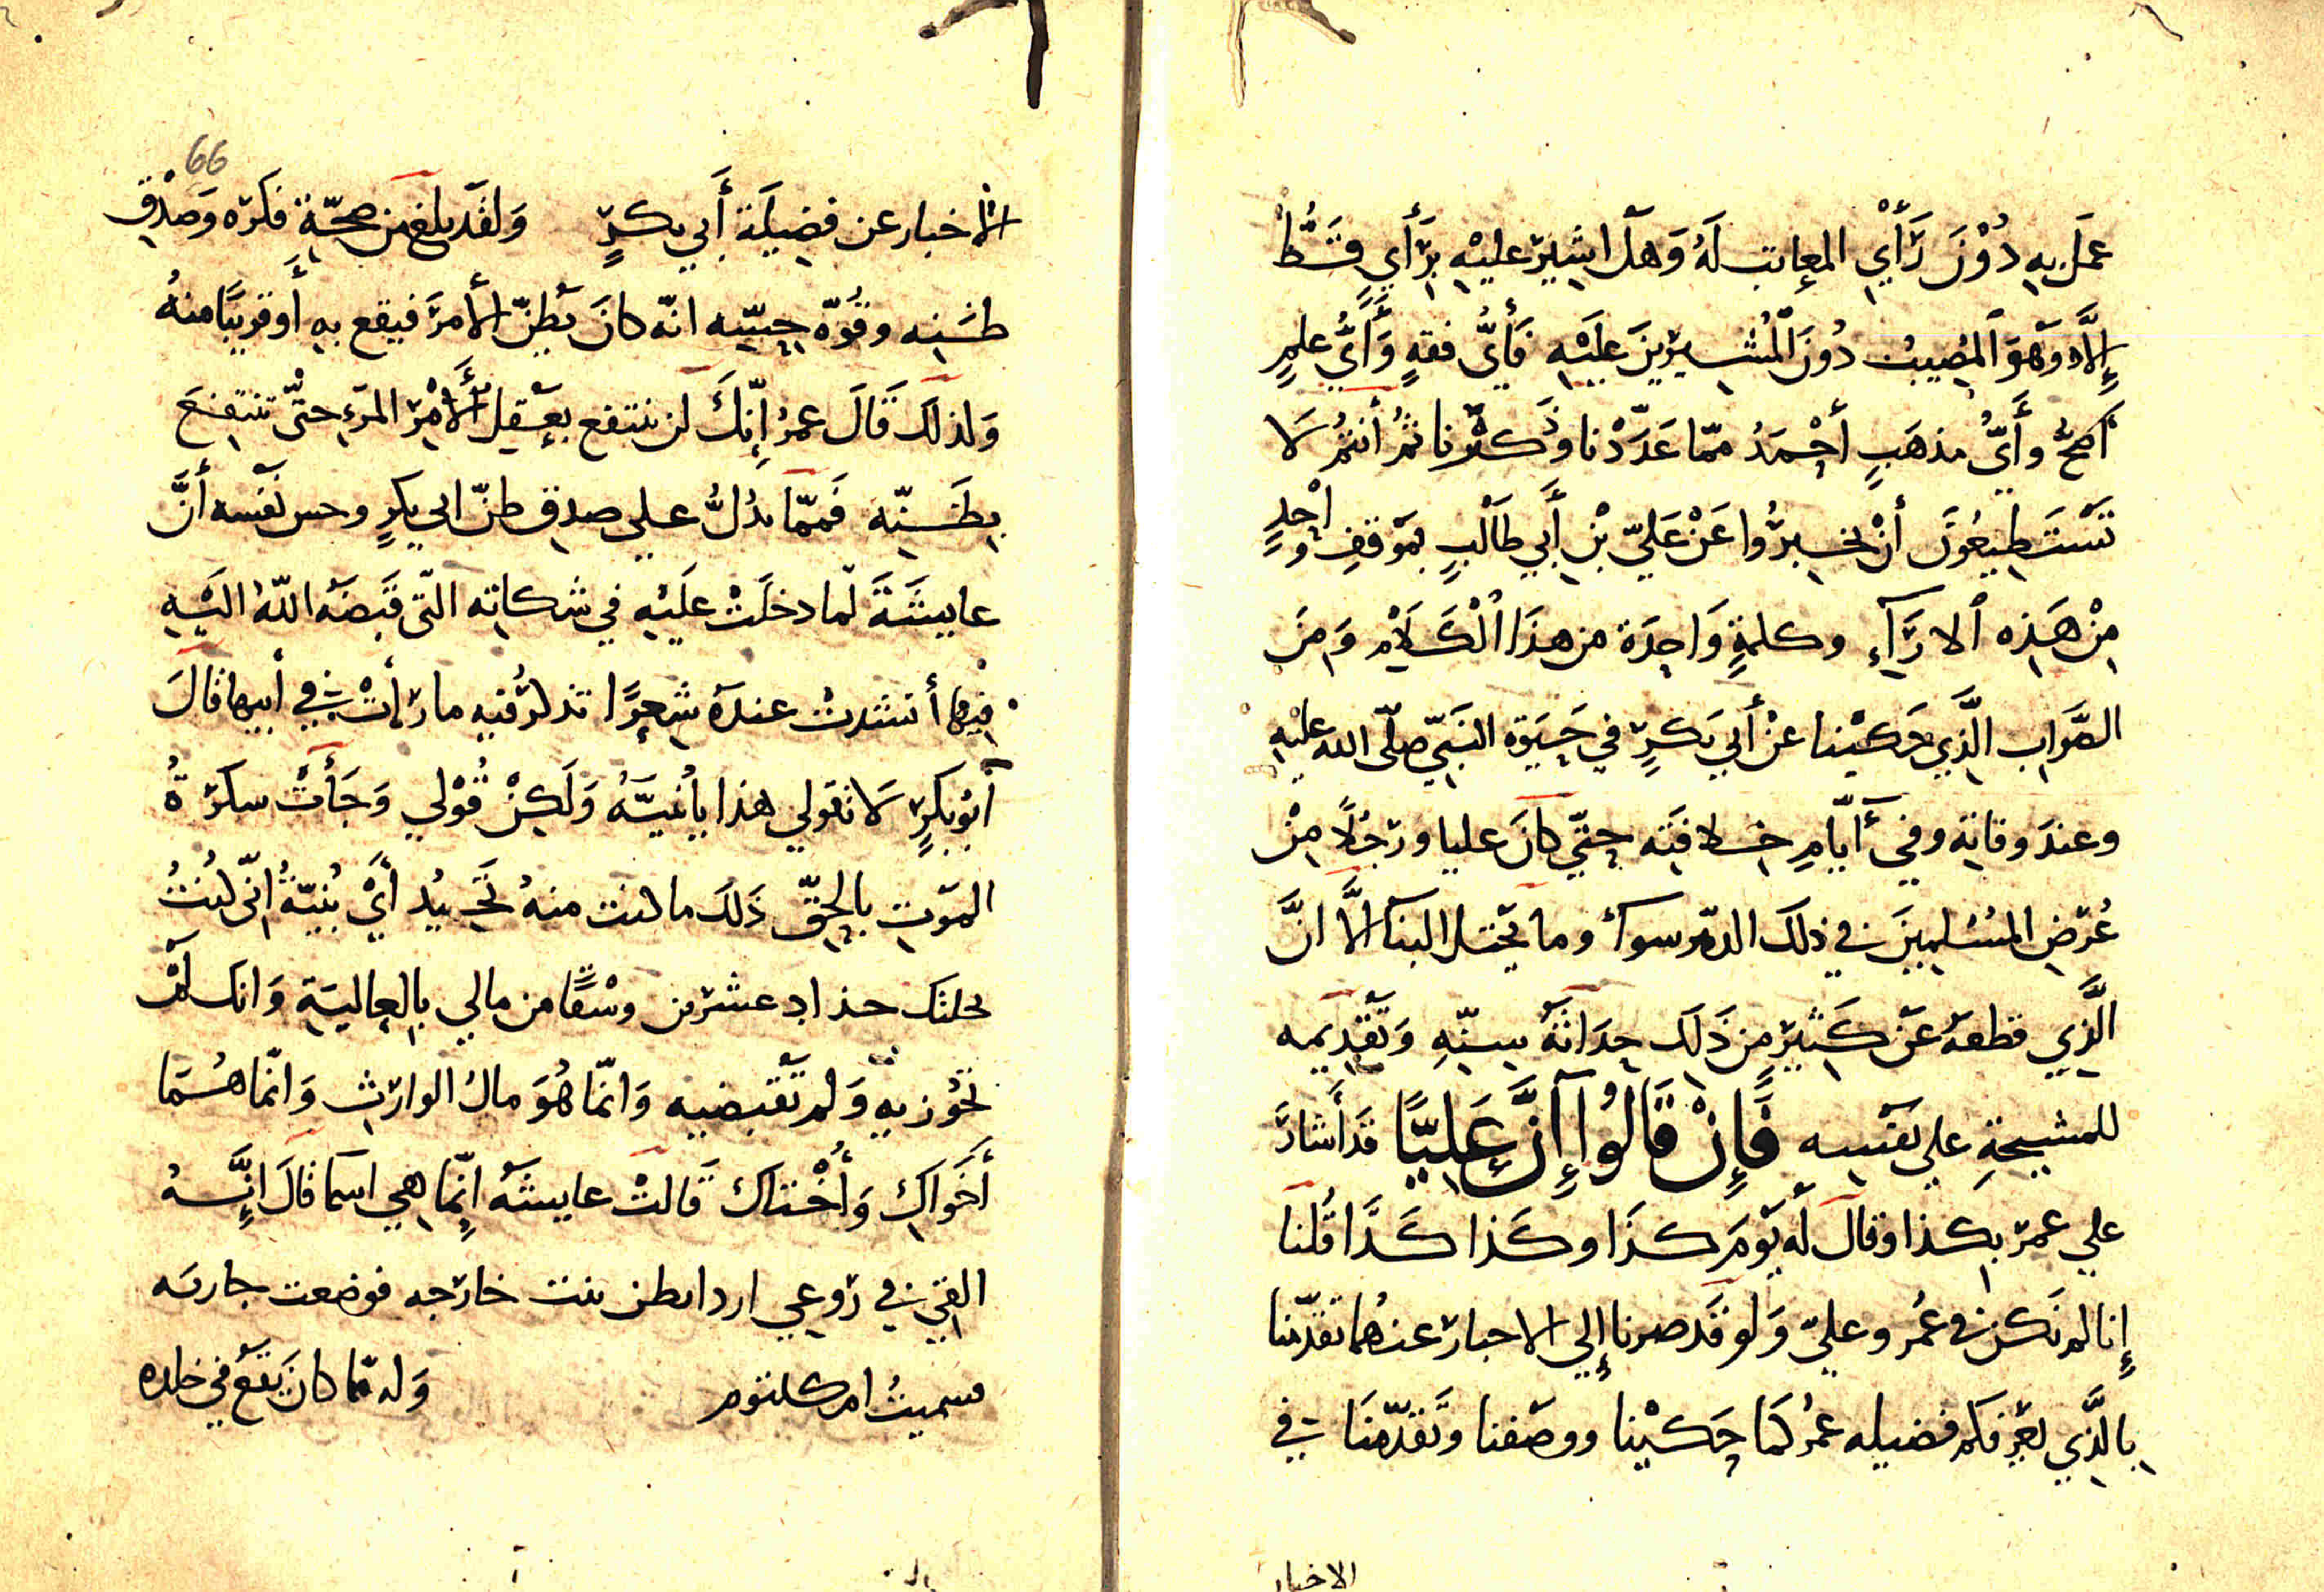 عمَلَ بِهِ دُوْنَ رَأْيِ المعاتب لَهُ وَهَل اشِيْرَ عليْهِ برَأَيٍ قَطُّ
إِلَّا وَهوَ المُصِيبُ دُونَ المُشِيرِينَ عَليْهِ فَأيُّ فقهٍ وَأَيُّ علمٍ
أصَحُّ وأَيُّ مذهَبٍ أحْمَدُ ممّا عَدَّدْنا وذَكَرْنا ثمُ أنتمُ لَا
تَسْتَطِيعُونَ أنْ تخبرُوا عَنْ عَليّ بْنِ أَبي طَالبٍ بموْقفٍ واحْدٍ
مِنْ هَذِه الارَآءِ وكلمةٍ وَاحِدَة من هذَا الْكَلَامِ وَمِنَ
الصَّوابِ الَّذِي حَكيْنا عنْ أَبي بَكرٍ في حَيَوة النَبيّ صلّى الله عليْهِ
وعندَ وفاتِه وفي أَيَّامِ خلافتِه حتّى كانَ عليا ورَجُلًا مِنْ
عُرْضِ المسْلمِينَ في ذلكَ الدهْر سوآءٌ وما يخيل الينآ إلاَّ انَّ
الَّذِي قطعهَ عَنْ كَثيْرٍ مِن ذَلَكَ حِدَاثَةُ سِنِّهِ وَتَقْدِيمه
للمشيخةِ علي نفْسِه فَإِنْ قَالُوا إِنَّ عَلِيًّا قدَأشارَ
علي عمرَ بكذا وقال لَهُ يَوْمَ كذَا وكَذا كَذَا قُلنا
إِنا لم نَكن في عُمرَ وعليّ وَلو قَد صرنا إِلي الاخبارَ عنهُما تقدّمنا
بِالَّذِي يعَرفكم فضيله عمرُ كمَا حَكيْنا ووصَفنا وتَقدّمنَا في
الاخبار
66
الاخبار عن فضِيلَة أَبي بكرٍ وَلقَد بلغ من صحّةِ فكرَه وَصدْقِ
ظنِه وقُوّة حِسِّه انّه كانَ يظنّ الأمرَ فيقع بهِ أَوقريبًا منهُ
وَلذلكَ قَالَ عمرُ إنّكَ لن ننتفع بعقِل الأمْرِ المرَءِ حتّى تنتفعَ
بِظَنِّه فَممّا يدُلُّ علي صدقِ ظنّ ابي بكرٍ وحس نَفْسه أنَّ
عايشَةَ لمّا دخلَتْ عَليْهِ في شكاتِه التّى قبَضهُ اللهُ اليْهِ
فيْها أنشدتْ عندَه شِعرًا تذكرُ فيهِ ما رَأتْ في أبيها قالَ
أبُو بكرٍ لا تقولي هذا يابُنيَّةُ وَلَكِنْ قُوْلي وَجَأتْ سكرَةُ
الموْتِ بالحِقّ ذَلكَ ما كنت منهُ تَحِيدُ أيْ بُنيّةُ إنّى كُنتُ
نحلتك حذاد عشرين وسْقًا من مالي بالعاليَة وَانك لمْ
تحُوزيهِ وَلم تَقْبضِيه وَانمّا هُوَ مالُ الوارثِ وَانّما هُما
أخَواكِ وَأُخْتاك قَالتْ عايشَةُ إنّما هي اسما قَالَ إنَّهُ
القي في رُوعي ارد ابطن بنت خارَجه فوضعت جاريه
فسميتْ ام كلثوم وَلهَ ممّا كانَ يَقعُ في خلده